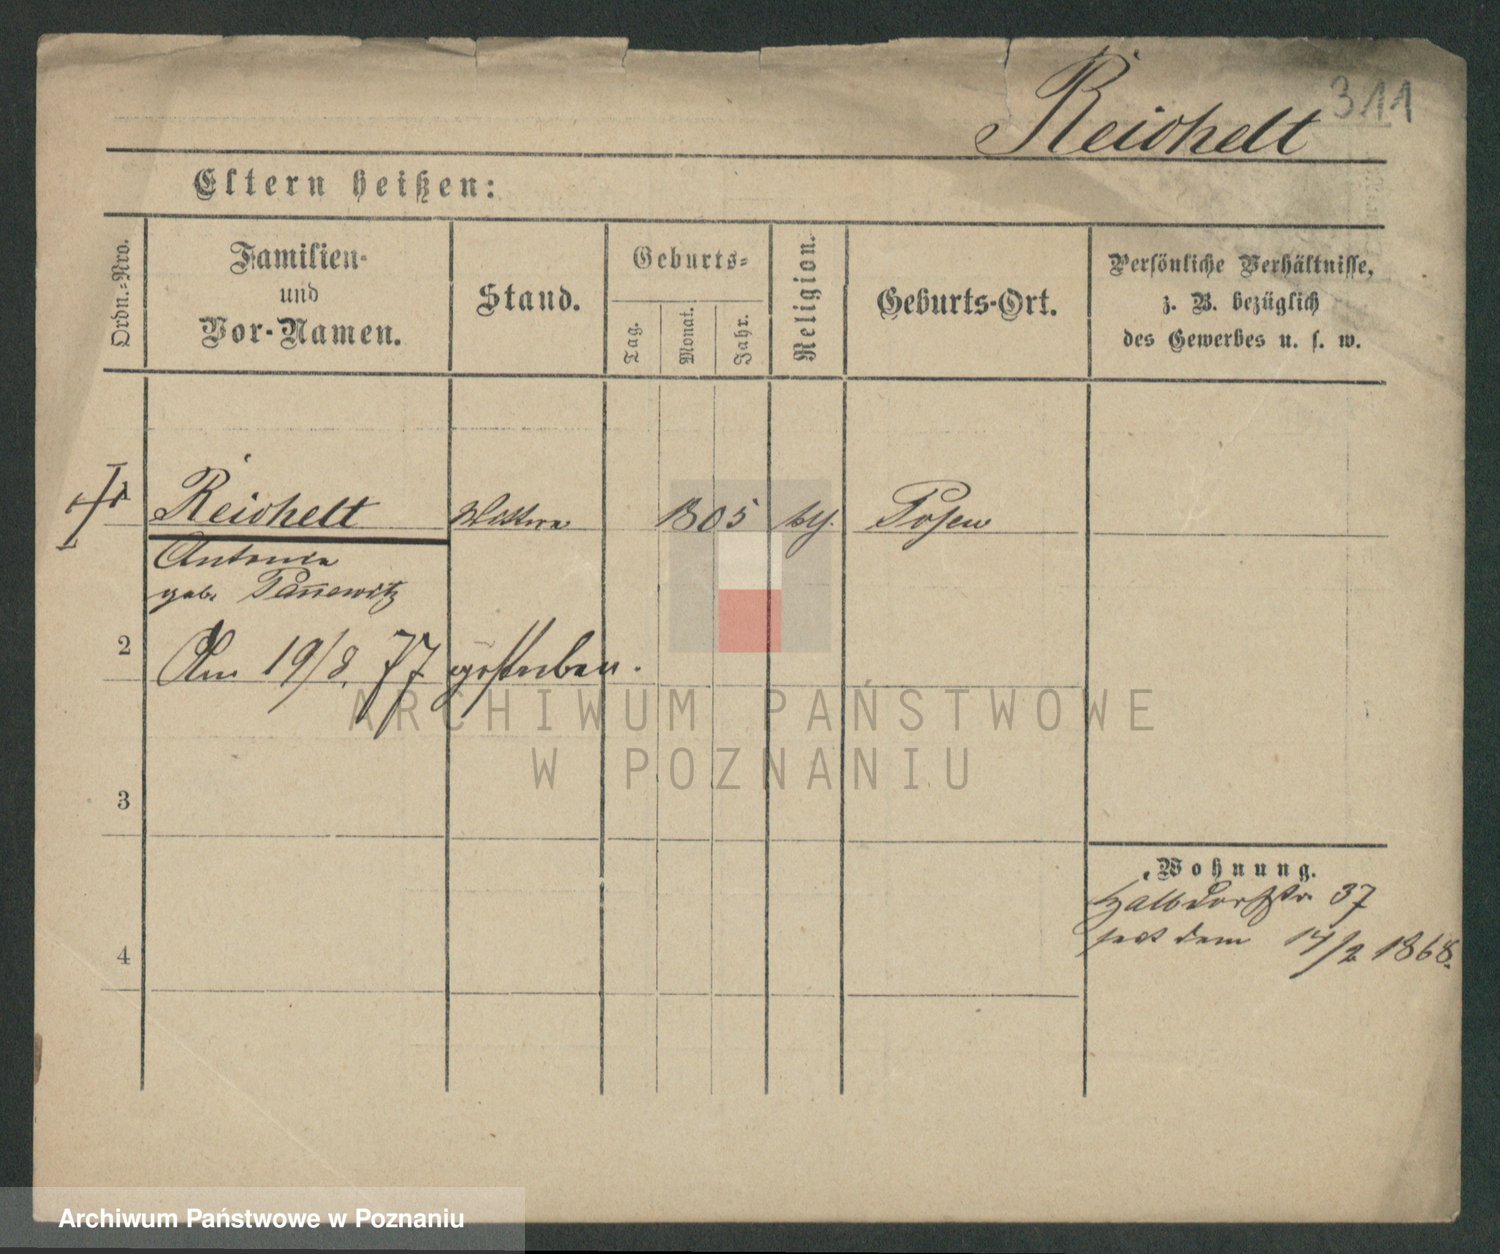 311
Reichelt
Eltern heißen:
Ordn.-Nro.
Familien-
und
Vor-Namen.
Stand.
Geburts-
Tag.
Monat.
Jahr.
Religion.
Geburts-Ort.
Persönliche Verhältnisse,
z. B. bezüglich
des Gewerbes u. s. w.
1 Reichelt Wittwe 1805 Posen
Antonia
geb. Pannewitz
2 Am 19/8. 77 gestorben.
ARCHIWUM PAŃSTWOWE
W POZNANIU
3
Wohnung.
Halbdorfstr. 37
seit dem 14/2 1868.
4
Archiwum Państwowe w Poznaniu